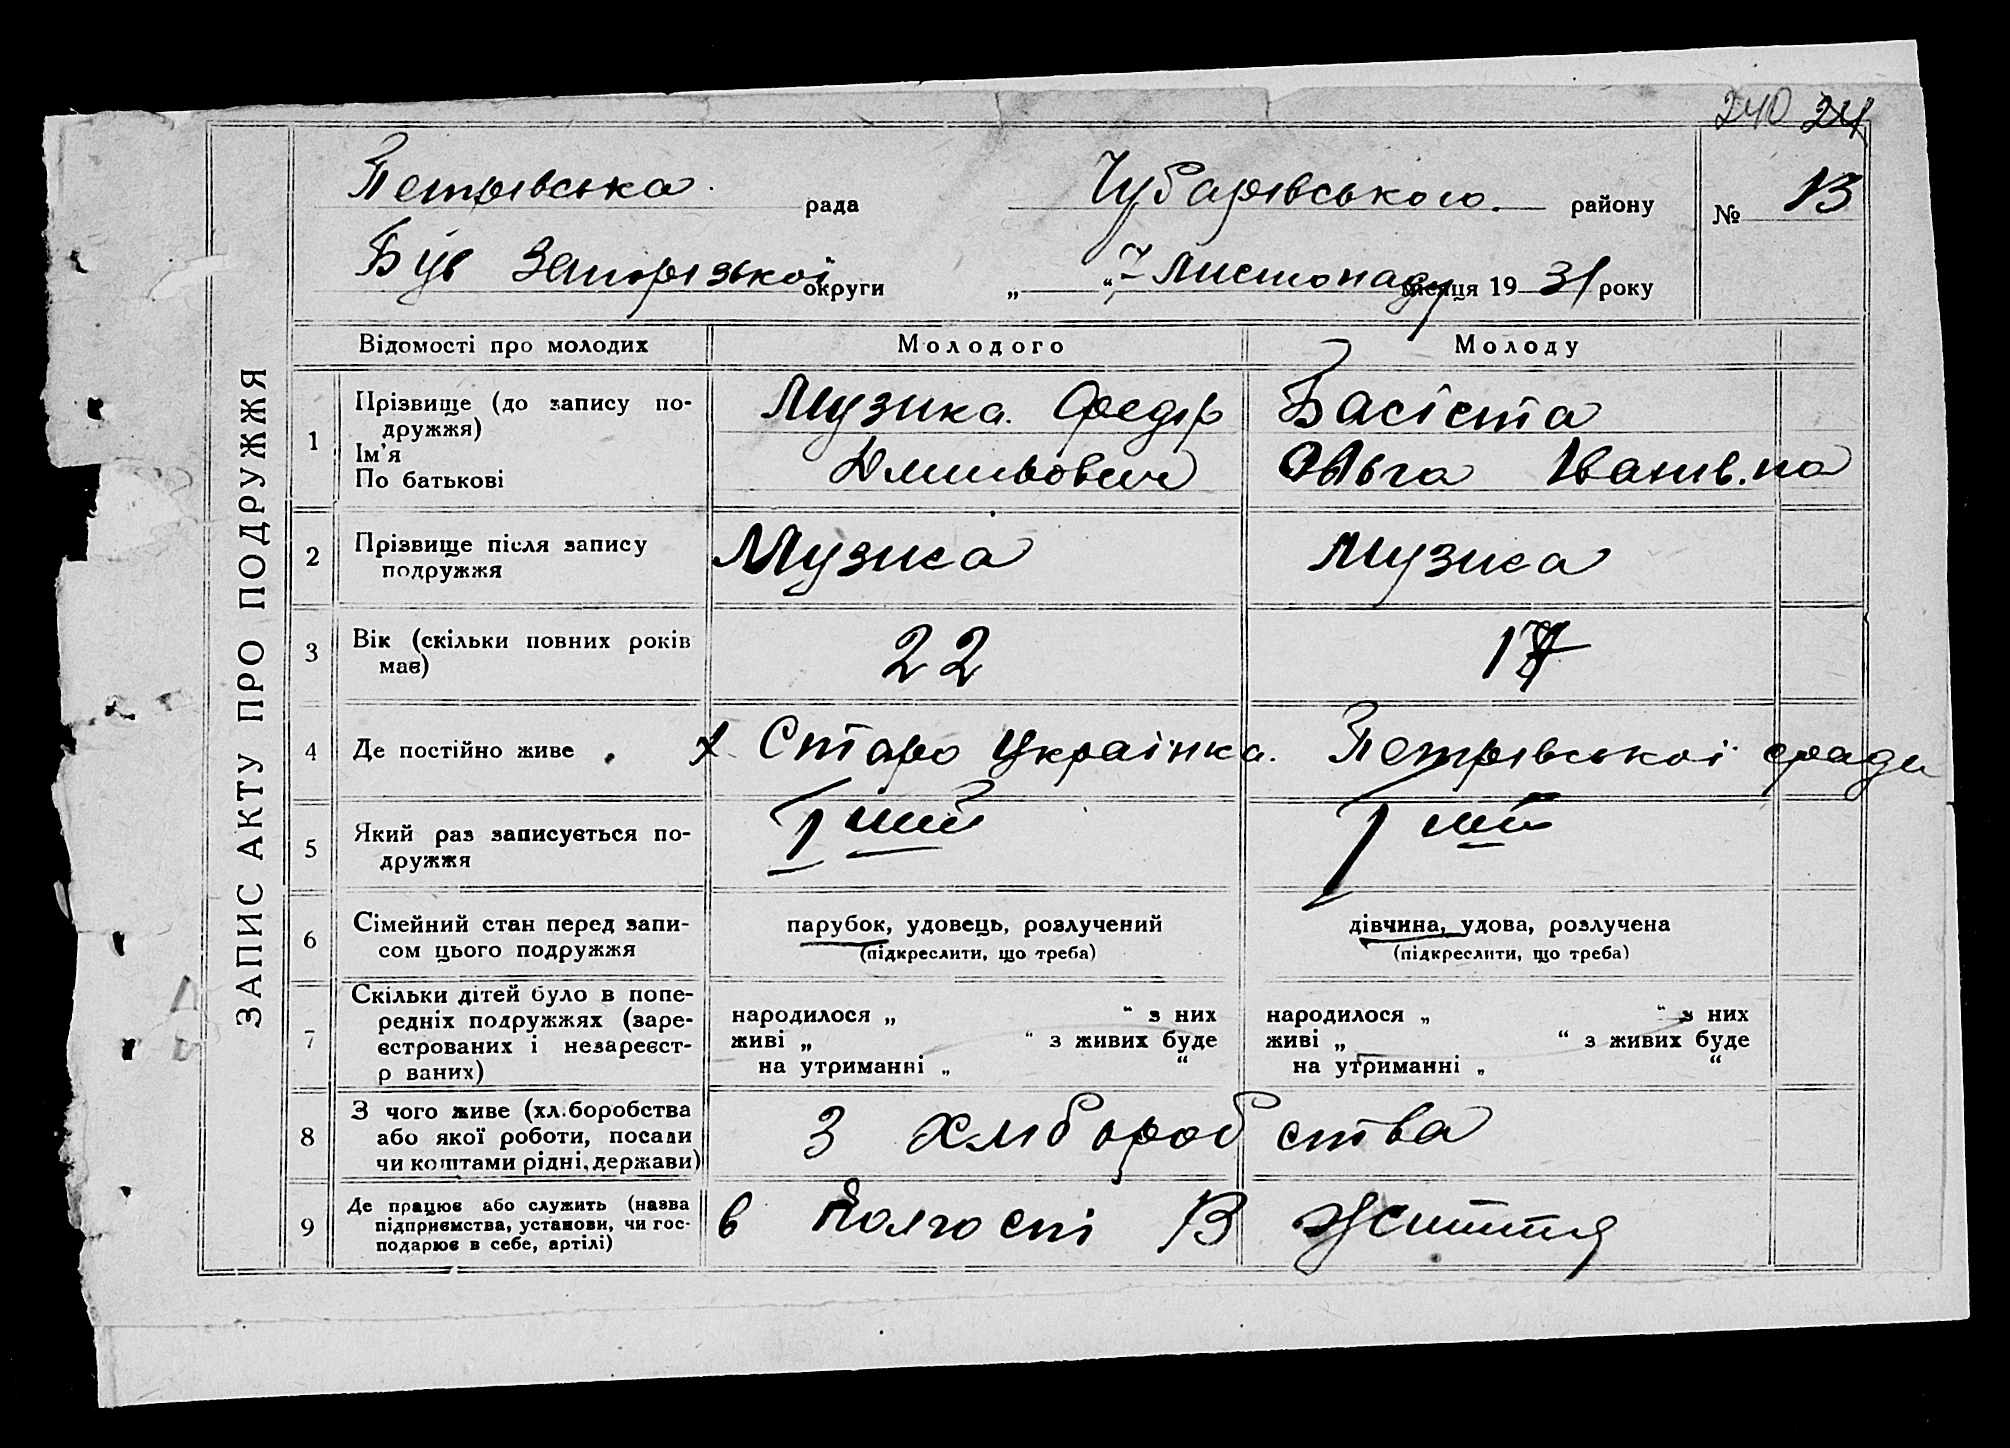 240 24
Петрівська рада Чубарівського району № 13
Був Запорізької округи „ “ 7 Листопаду місяця 1931 року
ЗАПИС АКТУ ПРО ПОДРУЖЖЯ
Відомості про молодих Молодого Молоду
1 Прізвище (до запису по-
дружжя)
Ім'я
По батькові
Музика Федір
Басіста
Ольга Іванів.на
2 Прізвище після запису
подружжя
Музика Музика
3 Вік (скільки повних років
має)
22 17
4 Де постійно живе . х Старо Українка. Петрівської ради
5 Який раз записується по-
дружжя
I ший I ший
6 Сімейний стан перед запи-
сом цього подружжя
парубок, удовець, розлучений
(підкреслити, що треба)
дівчина, удова, розлучена
(підкреслити, що треба)
7 Скільки дітей було в попе-
редніх подружжях (заре-
єстрованих і незареєст-
р ваних)
народилося „ “ з них
живі „ “ з живих буде
на утриманні „ “
народилося „ “ з них
живі „ “ з живих буде
на утриманні „ “
8 З чого живе (хл.боробства
або якої роботи, посади
чи коштами рідні, держави)
З хліборобства
9 Де працює або служить (назва
підприємства, установи, чи гос-
подарює в себе, артілі)
в Колгоспі В Життя